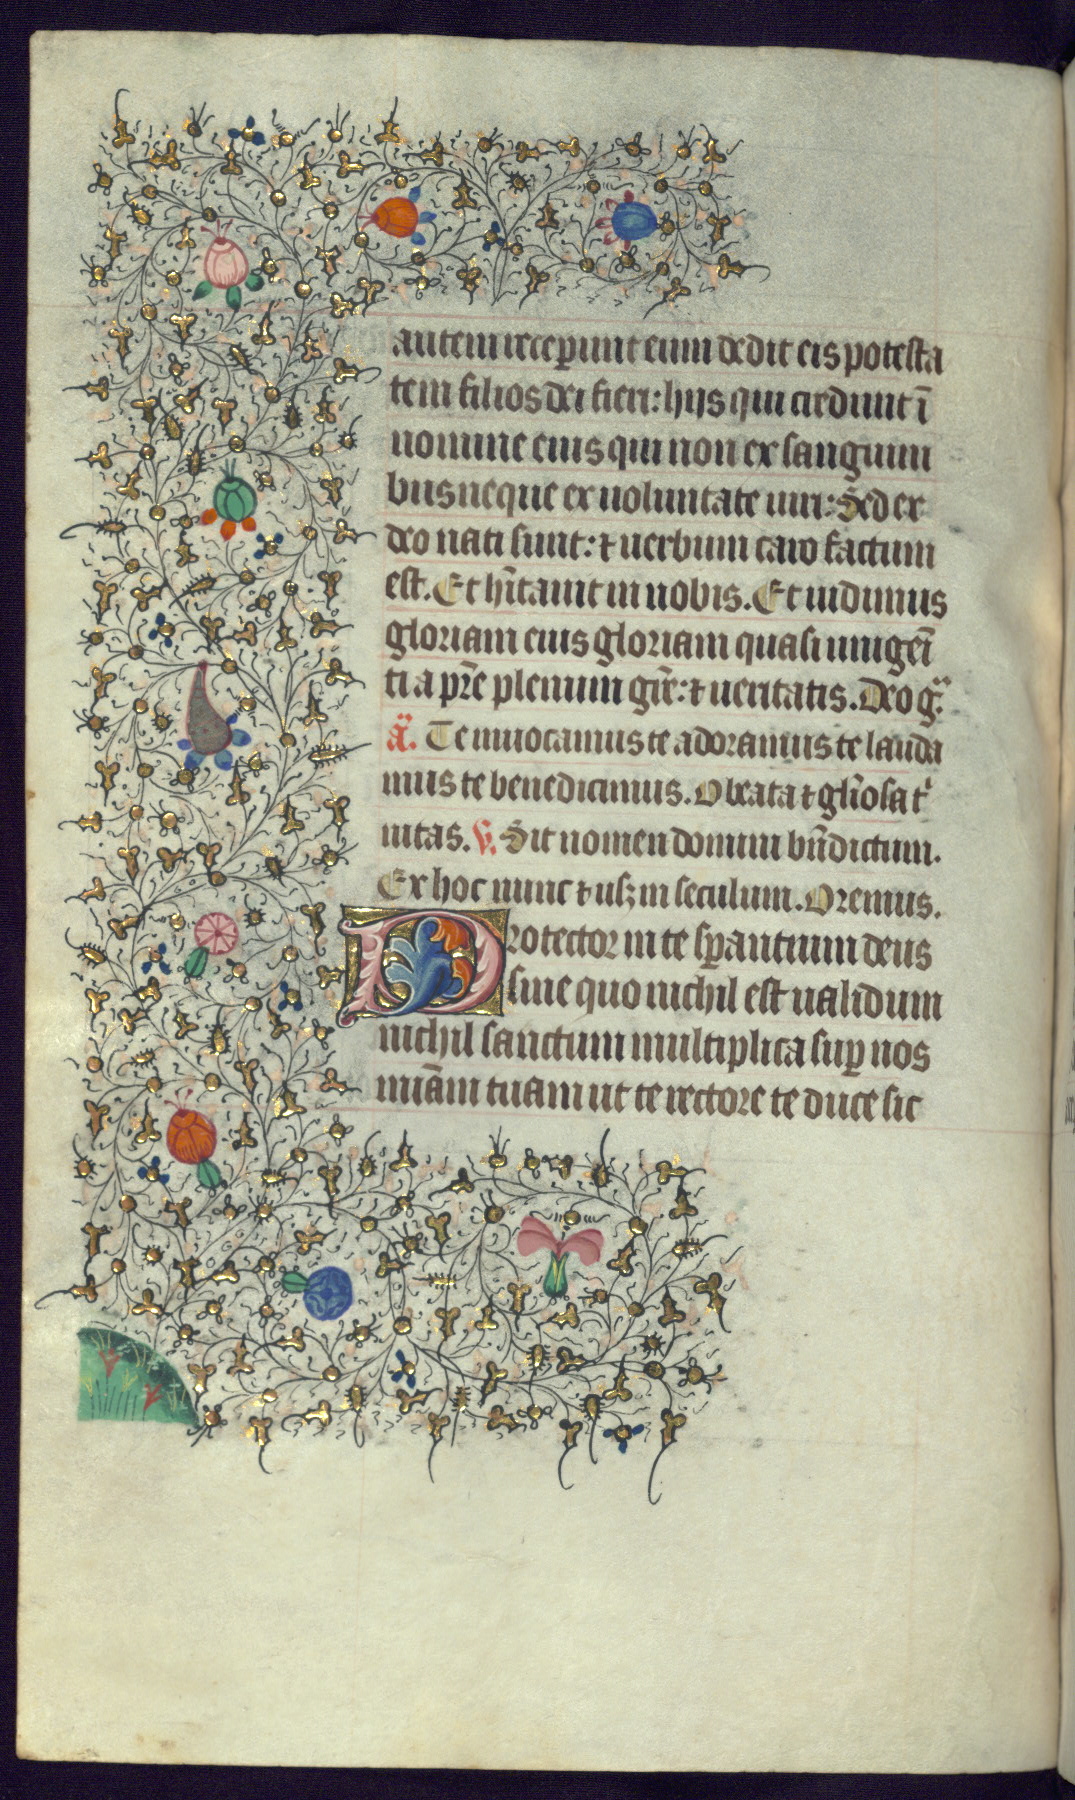 autem receperunt eum dedit eis potesta
tem filios dei fieri: hijs qui credunt ī
nomine eius qui non ex sanguini
bus neque ex uoluntate uiri: Sed ex
deo nati sunt: ⁊ uerbum caro factum
est. Et hītauit in nobis. Et uidimus
gloriam eius gloriam quasi unigeī
ti a pr̄e plenum gr̄e: ⁊ ueritatis. Deo gͣ.
aͣ. Te inuocamus te adoramus te lauda
mus te benedicimus. O beata ⁊ gl̄iosa tⁱ
nitas. v. Sit nomen domini bn̄dictum.
Ex hoc nunc ⁊ usqꝫ in seculum. Oremus.
Protector in te sꝑantium deus
sine quo nichil est ualidum
nichil sanctum multiplica suꝑ nos
miām tuam ut te rectore te duce sic